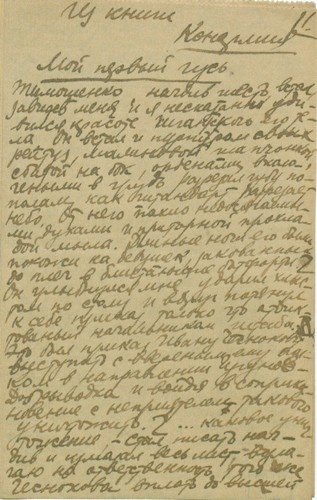 Из книги
Конармия
Мой первый гусь.
Тимошенко начдив шесть встал
завидев меня и я несказанно уди-
вился красоте гигантского его те-
ла. Он встал и пурпуром своих
рейтуз, малиновой шапчонкой
сбитой на бок, орденами вкола-
ченными в грудь разрезал избу по-
полам как штандарт разрезает
небо. От него пахло недосягаемы-
ми духами и приторной прохла-
дой мыла. Длинные ноги его были
похожи на девушек, закованных
до плеч в блестящие ботфорты.
Он улыбнулся мне, ударил хлы-
стом по столу и вдруг потянул
к себе приказ, только что продик-
тованный начальником штаба.
Это был приказ Ивану Чеснокову
выступить с вверенным ему пол-
ком в направлении Чугунов-
Добрыводка и войдя в соприкос-
новение с неприятелем такового
уничтожить. "... каковое унич-
тожение - стал писать нач-
див и измазал весь лист - возла-
гаю на ответственность того же
Чеснокова вплоть до высшей